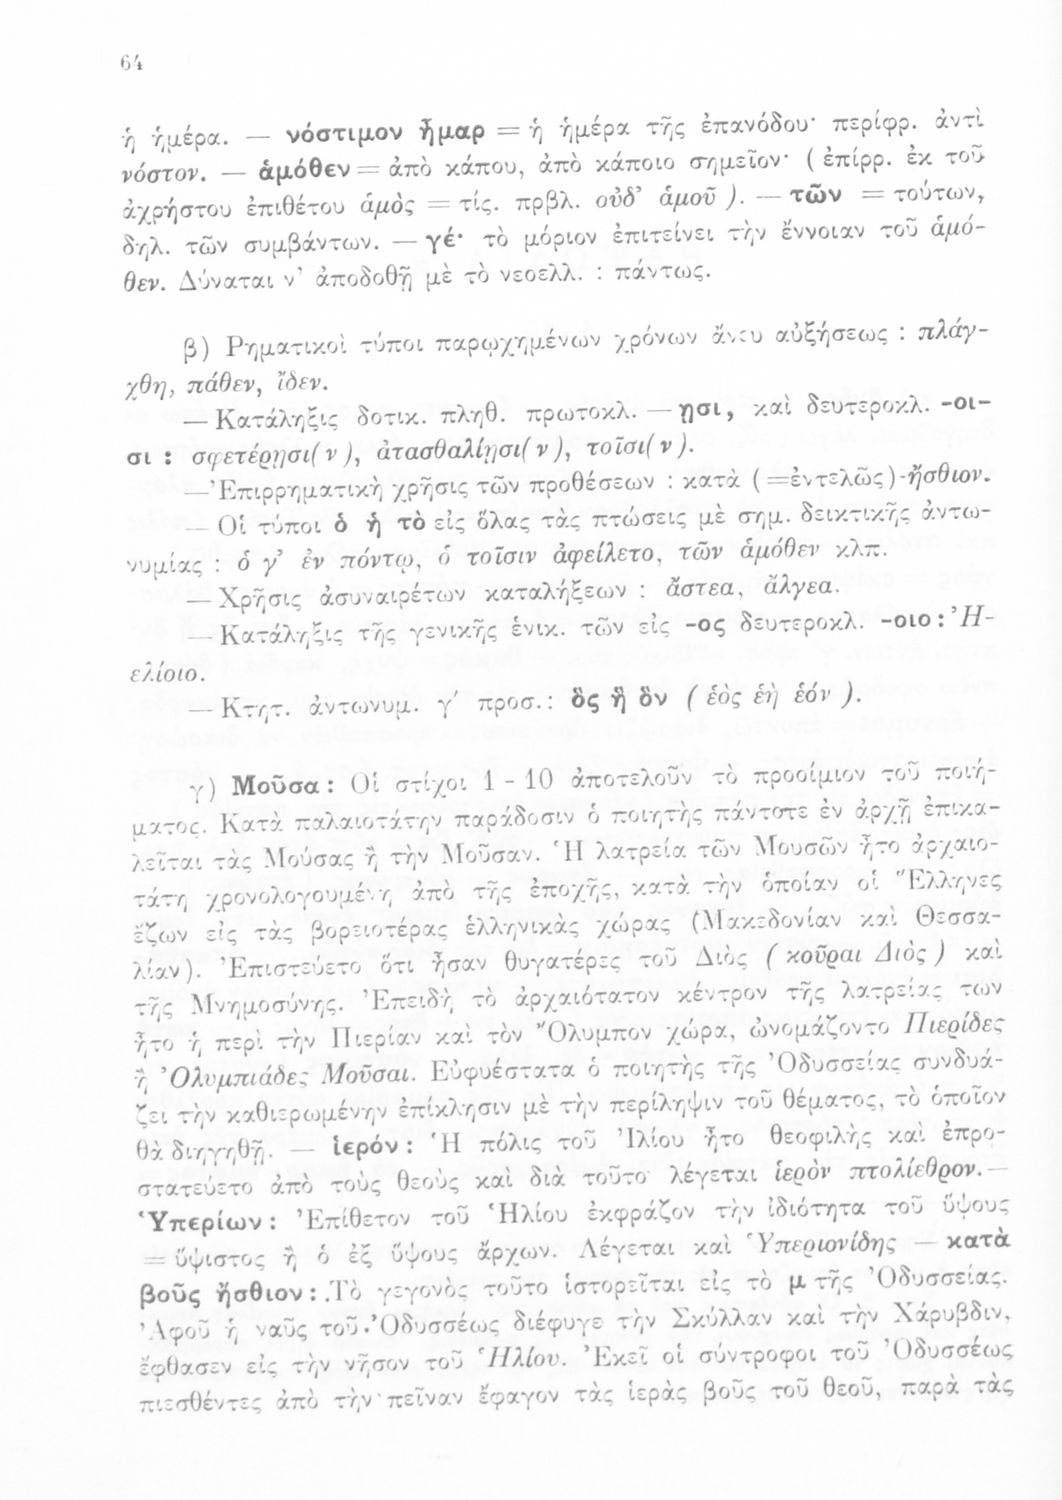 64
ἡ ἡμέρα. — νόστιμον ἦμαρ = ἡ ἡμέρα τῆς ἐπανόδου· περίφρ. ἀντὶ
νόστον. — ἁμόθεν = ἀπὸ κάπου, ἀπὸ κάποιο σημεῖον· ( ἐπίρρ. ἐκ τοῦ
ἀχρήστου ἐπιθέτου ἁμὸς = τίς. πρβλ. οὐδ’ ἁμοῦ ). — τῶν = τούτων,
δηλ. τῶν συμβάντων. — γέ· τὸ μόριον ἐπιτείνει τὴν ἔννοιαν τοῦ ἁμό-
θεν. Δύναται ν’ ἀποδοθῇ μὲ τὸ νεοελλ. : πάντως.
β) Ρηματικοὶ τύποι παρῳχημένων χρόνων ἄνευ αὐξήσεως : πλάγ-
χθη, πάθεν, ἴδεν.
— Κατάληξις δοτικ. πληθ. πρωτοκλ. — ῃσι, καὶ δευτεροκλ. -οι-
σι : σφετέρῃσι( ν ), ἀτασθαλίῃσι( ν ), τοῖσι( ν ).
—Ἐπιρρηματικὴ χρῆσις τῶν προθέσεων : κατὰ (=ἐντελῶς)-ἤσθιον.
— Οἱ τύποι ὁ ἡ τὸ εἰς ὅλας τὰς πτώσεις μὲ σημ. δεικτικῆς ἀντω-
νυμίας : ὁ γ’ ἐν πόντῳ, ὁ τοῖσιν ἀφείλετο, τῶν ἁμόθεν κλπ.
— Χρῆσις ἀσυναιρέτων καταλήξεων : ἄστεα, ἄλγεα.
— Κατάληξις τῆς γενικῆς ἑνικ. τῶν εἰς -ος δευτεροκλ. -οιο : Ἠ-
ελίοιο.
— Κτητ. ἀντωνυμ. γ΄ προσ. : ὃς ἣ ὃν ( ἑὸς ἑὴ ἑόν ).
γ) Μοῦσα : Οἱ στίχοι 1 - 10 ἀποτελοῦν τὸ προοίμιον τοῦ ποιή-
ματος. Κατὰ παλαιοτάτην παράδοσιν ὁ ποιητὴς πάντοτε ἐν ἀρχῇ ἐπικα-
λεῖται τὰς Μούσας ἢ τὴν Μοῦσαν. Ἡ λατρεία τῶν Μουσῶν ἦτο ἀρχαιο-
τάτη χρονολογουμένη ἀπὸ τῆς ἐποχῆς, κατὰ τὴν ὁποίαν οἱ Ἕλληνες
ἔζων εἰς τὰς βορειοτέρας ἑλληνικὰς χώρας (Μακεδονίαν καὶ Θεσσα-
λίαν). Ἐπιστεύετο ὅτι ἦσαν θυγατέρες τοῦ Διὸς ( κοῦραι Διὸς ) καὶ
τῆς Μνημοσύνης. Ἐπειδὴ τὸ ἀρχαιότατον κέντρον τῆς λατρείας των
ἦτο ἡ περὶ τὴν Πιερίαν καὶ τὸν Ὄλυμπον χώρα, ὠνομάζοντο Πιερίδες
ἢ Ὀλυμπιάδες Μοῦσαι. Εὐφυέστατα ὁ ποιητὴς τῆς Ὀδυσσείας συνδυά-
ζει τὴν καθιερωμένην ἐπίκλησιν μὲ τὴν περίληψιν τοῦ θέματος, τὸ ὁποῖον
θὰ διηγηθῇ. — ἱερόν : Ἡ πόλις τοῦ Ἰλίου ἦτο θεοφιλὴς καὶ ἐπρο-
στατεύετο ἀπὸ τοὺς θεοὺς καὶ διὰ τοῦτο λέγεται ἱερὸν πτολίεθρον.—
Ὑπερίων : Ἐπίθετον τοῦ Ἡλίου ἐκφράζον τὴν ἰδιότητα τοῦ ὕψους
= ὕψιστος ἢ ὁ ἐξ ὕψους ἄρχων. Λέγεται καὶ Ὑπεριονίδης — κατὰ
βοῦς ἤσθιον : Τὸ γεγονὸς τοῦτο ἱστορεῖται εἰς τὸ μ τῆς Ὀδυσσείας.
Ἀφοῦ ἡ ναῦς τοῦ Ὀδυσσέως διέφυγε τὴν Σκύλλαν καὶ τὴν Χάρυβδιν,
ἔφθασεν εἰς τὴν νῆσον τοῦ Ἡλίου. Ἐκεῖ οἱ σύντροφοι τοῦ Ὀδυσσέως
πιεσθέντες ἀπὸ τὴν πεῖναν ἔφαγον τὰς ἱερὰς βοῦς τοῦ θεοῦ, παρὰ τὰς